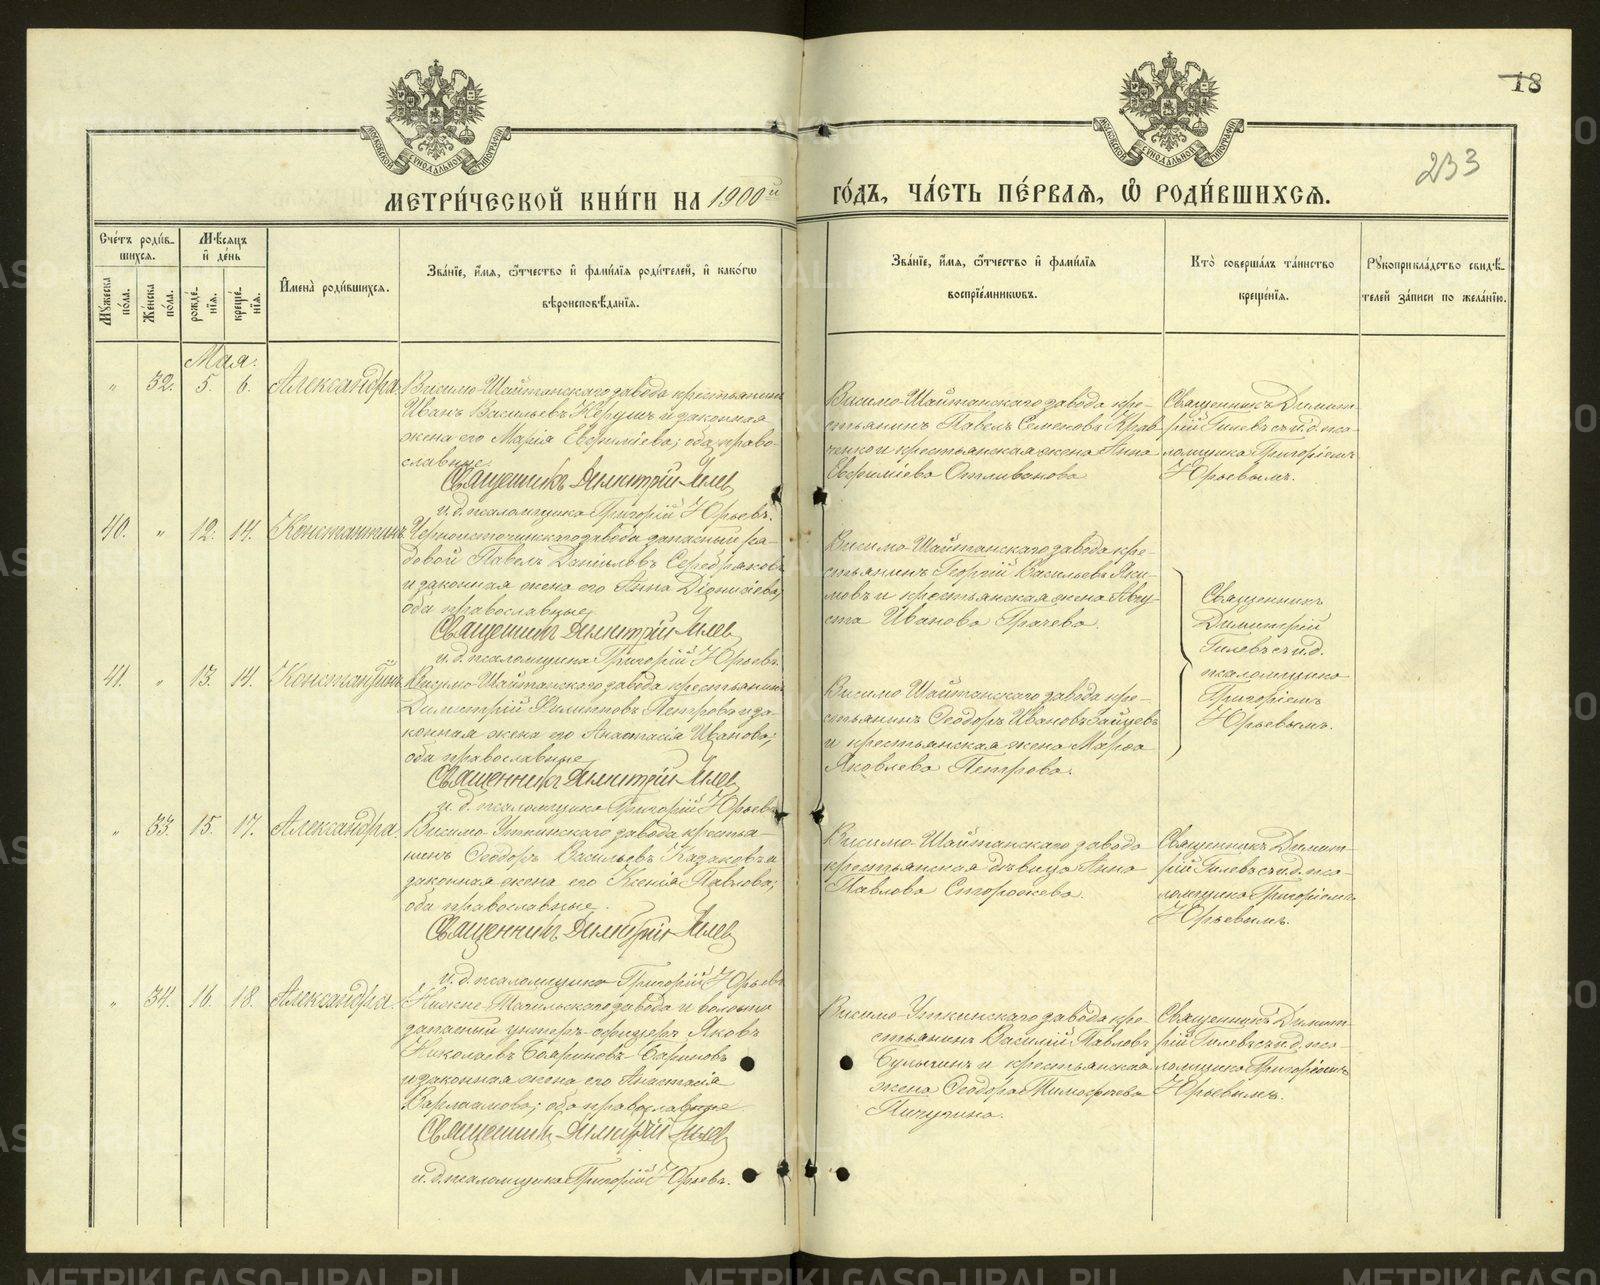 18
233
МОСКОВСКОЙ СѴНОДАЛЬНОЙ ТИПОГРАФІИ
МОСКОВСКОЙ СѴНОДАЛЬНОЙ ТИПОГРАФІИ
МЕТРИ́ЧЕСКОЙ КНИ́ГИ НА 1900й ГО́ДЪ, ЧА́СТЬ ПЕ́РВАЯ, Ѡ҆ РОДИ́ВШИХСЯ.
Сче́тъ роди́в-
шихся.
Мꙋжеска по́ла.
Же́нска по́ла.
Мѣ́сяцъ
и҆ де́нь
рожде́-
нїя.
креще́-
нїя.
И҆мена̀ роди́вшихся.
Зва́нїе, и҆́мя, ѻ҆́тчество и҆ фами́лїя роди́телей, и҆ како́гѡ
вѣроисповѣ́данїя.
Зва́нїе, и҆́мя, ѻ҆́тчество и҆ фами́лїя
воспрїе́мникѡвъ.
Кто̀ соверша́лъ та́инство
креще́нїя.
Рꙋкоприкла́дство свидѣ́-
телей за́писи по жела́нїю.
Мая.
" 32. 5. 6. Александра
Висимо-Шайтанскаго завода крестьянинъ
Иванъ Васильевъ и законная
жена его Марія Евфиміева; оба право-
славные
Священникъ Димитрій Гилев
и. д. псаломщика Григорій Юрьевъ.
Висимо-Шайтанскаго завода кре-
стьянинъ Павелъ Семеновъ Крав-
ченко и крестьянская жена Анна
Евфиміева Отливанова
Священникъ Димит-
рій Гилевъ съ и. д. пса-
ломщика Григоріемъ
Юрьевымъ.
40. " 12. 14. Константинъ
Черноисточинскаго завода запасный ря-
довой Павелъ Даніиловъ Серебряковъ
и законная жена его Анна Діонисіева;
оба православные.
Священникъ Димитрій Гилев
и. д. псаломщика Григорій Юрьевъ.
Висимо-Шайтанскаго завода кре-
стьянинъ Георгій Васильевъ Яки-
мовъ и крестьянская жена Авгу-
ста Иванова Грачева.
Священникъ
Димитрій
Гилевъ съ и. д.
псаломщика
Григоріемъ
Юрьевымъ.
41. " 13. 14. Константинъ
Висимо-Шайтанскаго завода крестьянинъ
Димитрій Филипповъ Петровъ и за-
конная жена его Анастасія Иванова;
оба православные
Священникъ Димитрій Гилев
и. д. псаломщика Григорій Юрьевъ
Висимо-Шайтанскаго завода кре-
стьянинъ Ѳеодоръ Ивановъ Зайцевъ
и крестьянская жена Марѳа
Яковлева Петрова.
" 33. 15. 17. Александра.
Висимо-Уткинскаго завода крестья-
нинъ Ѳеодоръ Васильевъ Казаковъ и
законная жена его Ксенія Павлова;
оба православные.
Священникъ Димитрій Гилев
и. д. псаломщика Григорій Юрьевъ
Висимо-Шайтанскаго завода
крестьянская дѣвица Анна
Павлова Сторожева.
Священникъ Димит-
рій Гилевъ съ и. д. пса-
ломщика Григоріемъ
Юрьевымъ.
" 34. 16. 18. Александра.
Нижне-Тагильскаго завода и волости
запасный унтеръ-офицеръ Яковъ
Николаевъ Бояриновъ-Бариновъ
и законная жена его Анастасія
Варлаамова; оба православные.
Священникъ Димитрій Гилев
и. д. псаломщика Григорій Юрьевъ.
Висимо-Уткинскаго завода кре-
стьянинъ Василій Павловъ
Булыгинъ и крестьянская
жена Ѳеодора Тимофеева
Пичугина.
Священникъ Димит-
рій Гилевъ съ и. д. пса-
ломщика Григоріемъ
Юрьевымъ.
METRIKI.GASO-URAL.RU